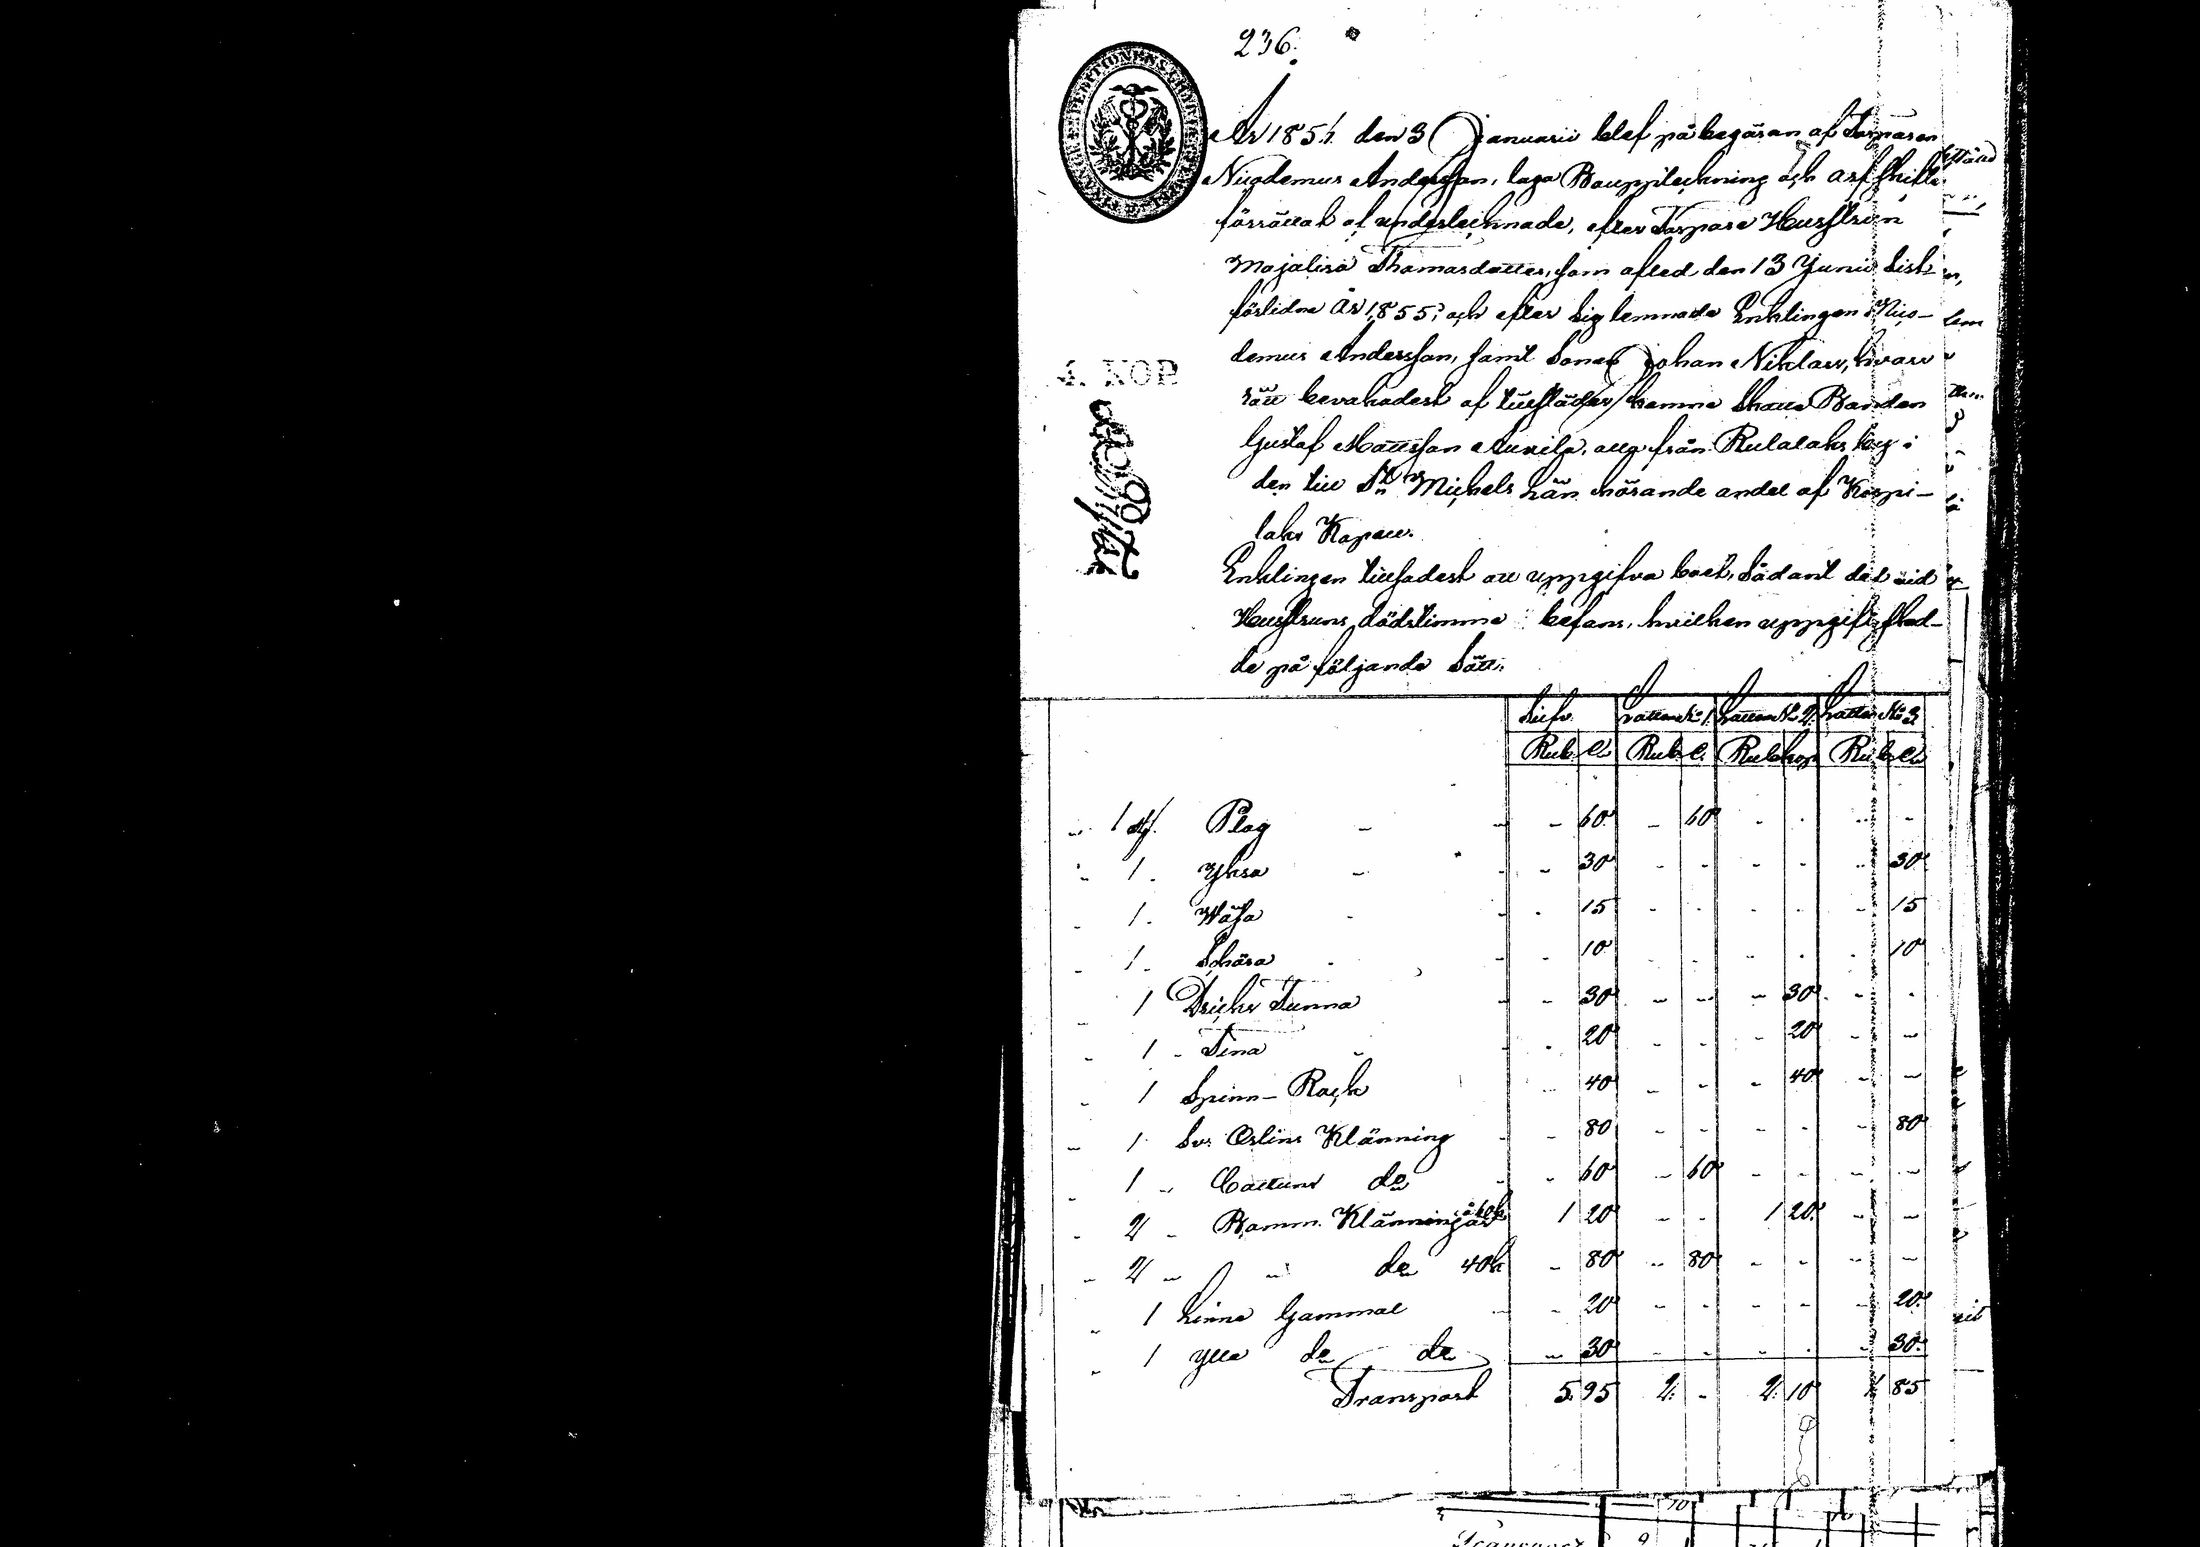 236.
År 185. den 3 Januarii blef på begäran af Torparen
Nicodemus Andersson, laga Bouppteckning och arfskifte
förrättat af undertecknade, efter Torpare Hustrun
Majalisa Thomasdotter, som afled den 13 Junii sist-
förlidne År 1855, och efter sig lemnade Enklingen Nico-
demus Andersson, samt Sonen Johan Niklas, hvars
rätt bevakades af tillstädes komne Skatte Bonden
Gustaf Mattsson Aurila, alla från Rutalaks by i
den till St Michels Län hörande andel af Korpi-
laks Kapell.
Enklingen tillsades att uppgifva boet, sådant det vid
Hustruns dödstimme befans, hvilken uppgift sked-
de på följande Sätt.
Lotten No 1. Lotten No 2. Lotten No 3
Rub. C. Rub. C. Rub. kop. Rub. C.
1 st. Plog - - 60 - 60 - - - -
1 - Yxa - - 30 - - - - - 30
1 - - - 15 - - - - - 15
1 - Skära - - 10 - - - - - 10
1 Dricks Tunna - - 30 - - - 30 - -
1 - Tina - - 20 - - - 20 - -
1 Spinn-Rock - 40 - - - 40 - -
1 Klänning - - 80 - - - - - 80
1 - Cattuns do - 60 - 60 - - - -
2 - Bomm. Klänning 1 20 - - 1 20 - -
2 - " do 40k - 80 - 80 - - - -
1 Linne Gammal - 20 - - - - - 20
1 Ylle do do - 30 - - - - - 30
Transport 5. 95 2. - 2. 10 1 85